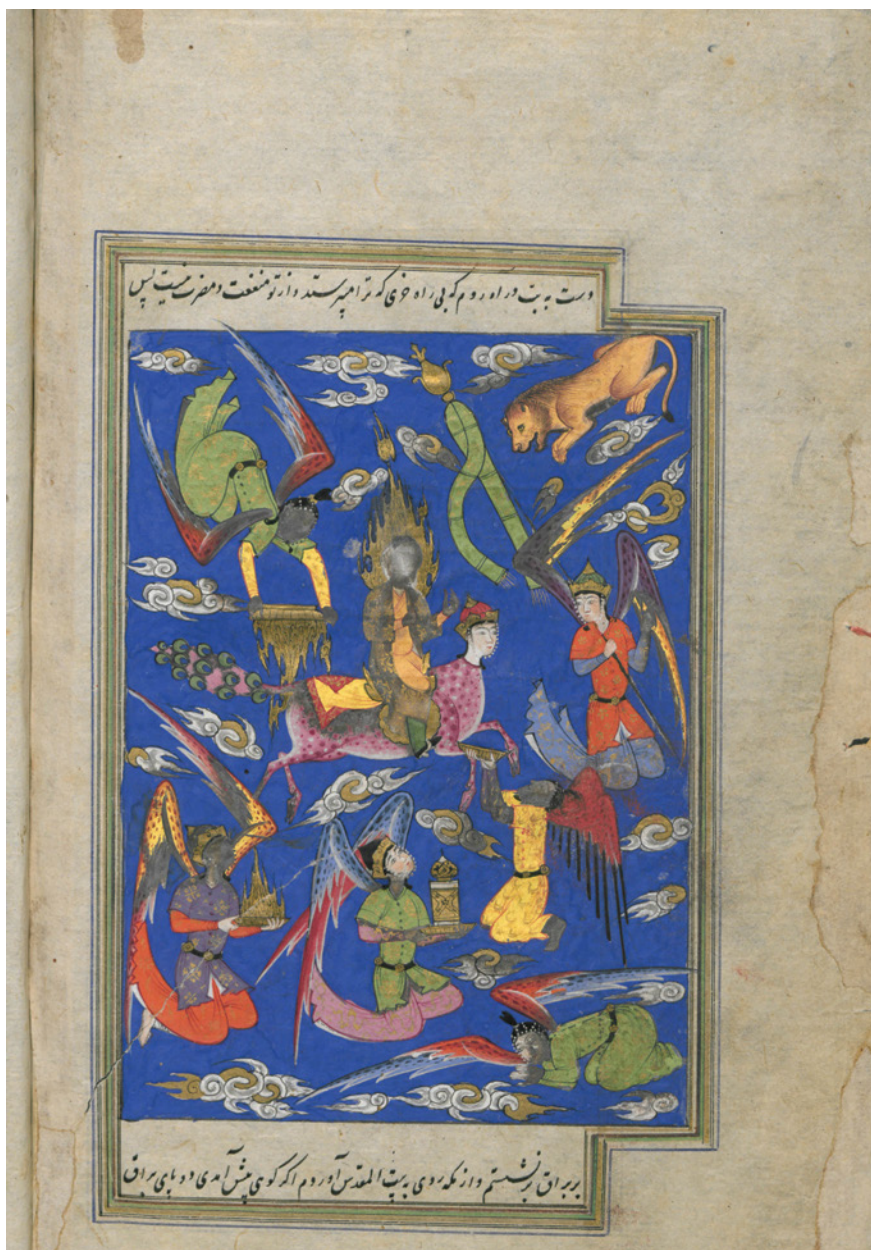 دست به بت در آوردم که بی راه خری که ترا میپرستد و از تو منفعت و مضرت نیست پس
بر براق نشستم و از مکه روی به بیت المقدس آوردم اگر کوی پیش آمدی دو پای براق